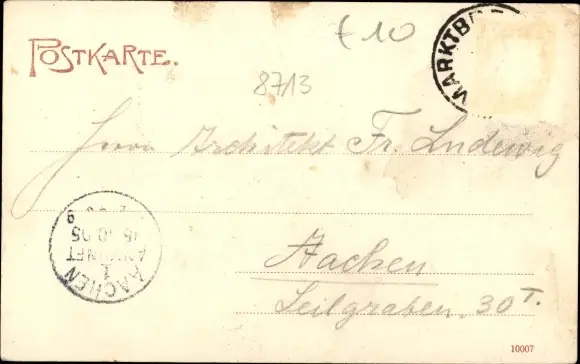 POSTKARTE.
€10
8713
MARKTB
Herrn Architekt Fr. Ludewig
AACHEN
1
ANKUNFT
15 10 05
Aachen
Seilgraben. 30 T.
10007